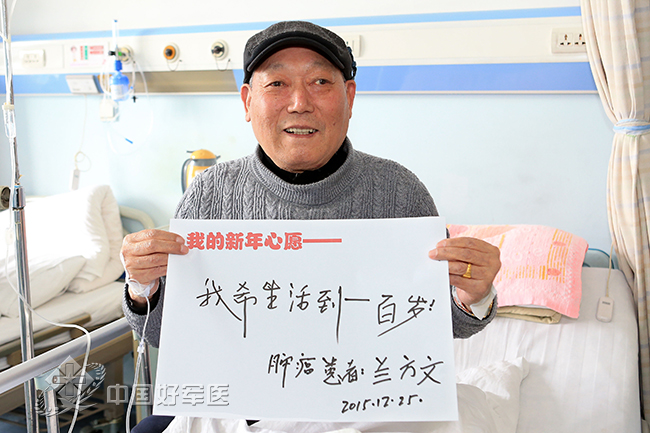 我的新年心愿——
我希望活到一百岁!
肿瘤患者:兰方文
2015.12.25.
中国好军医